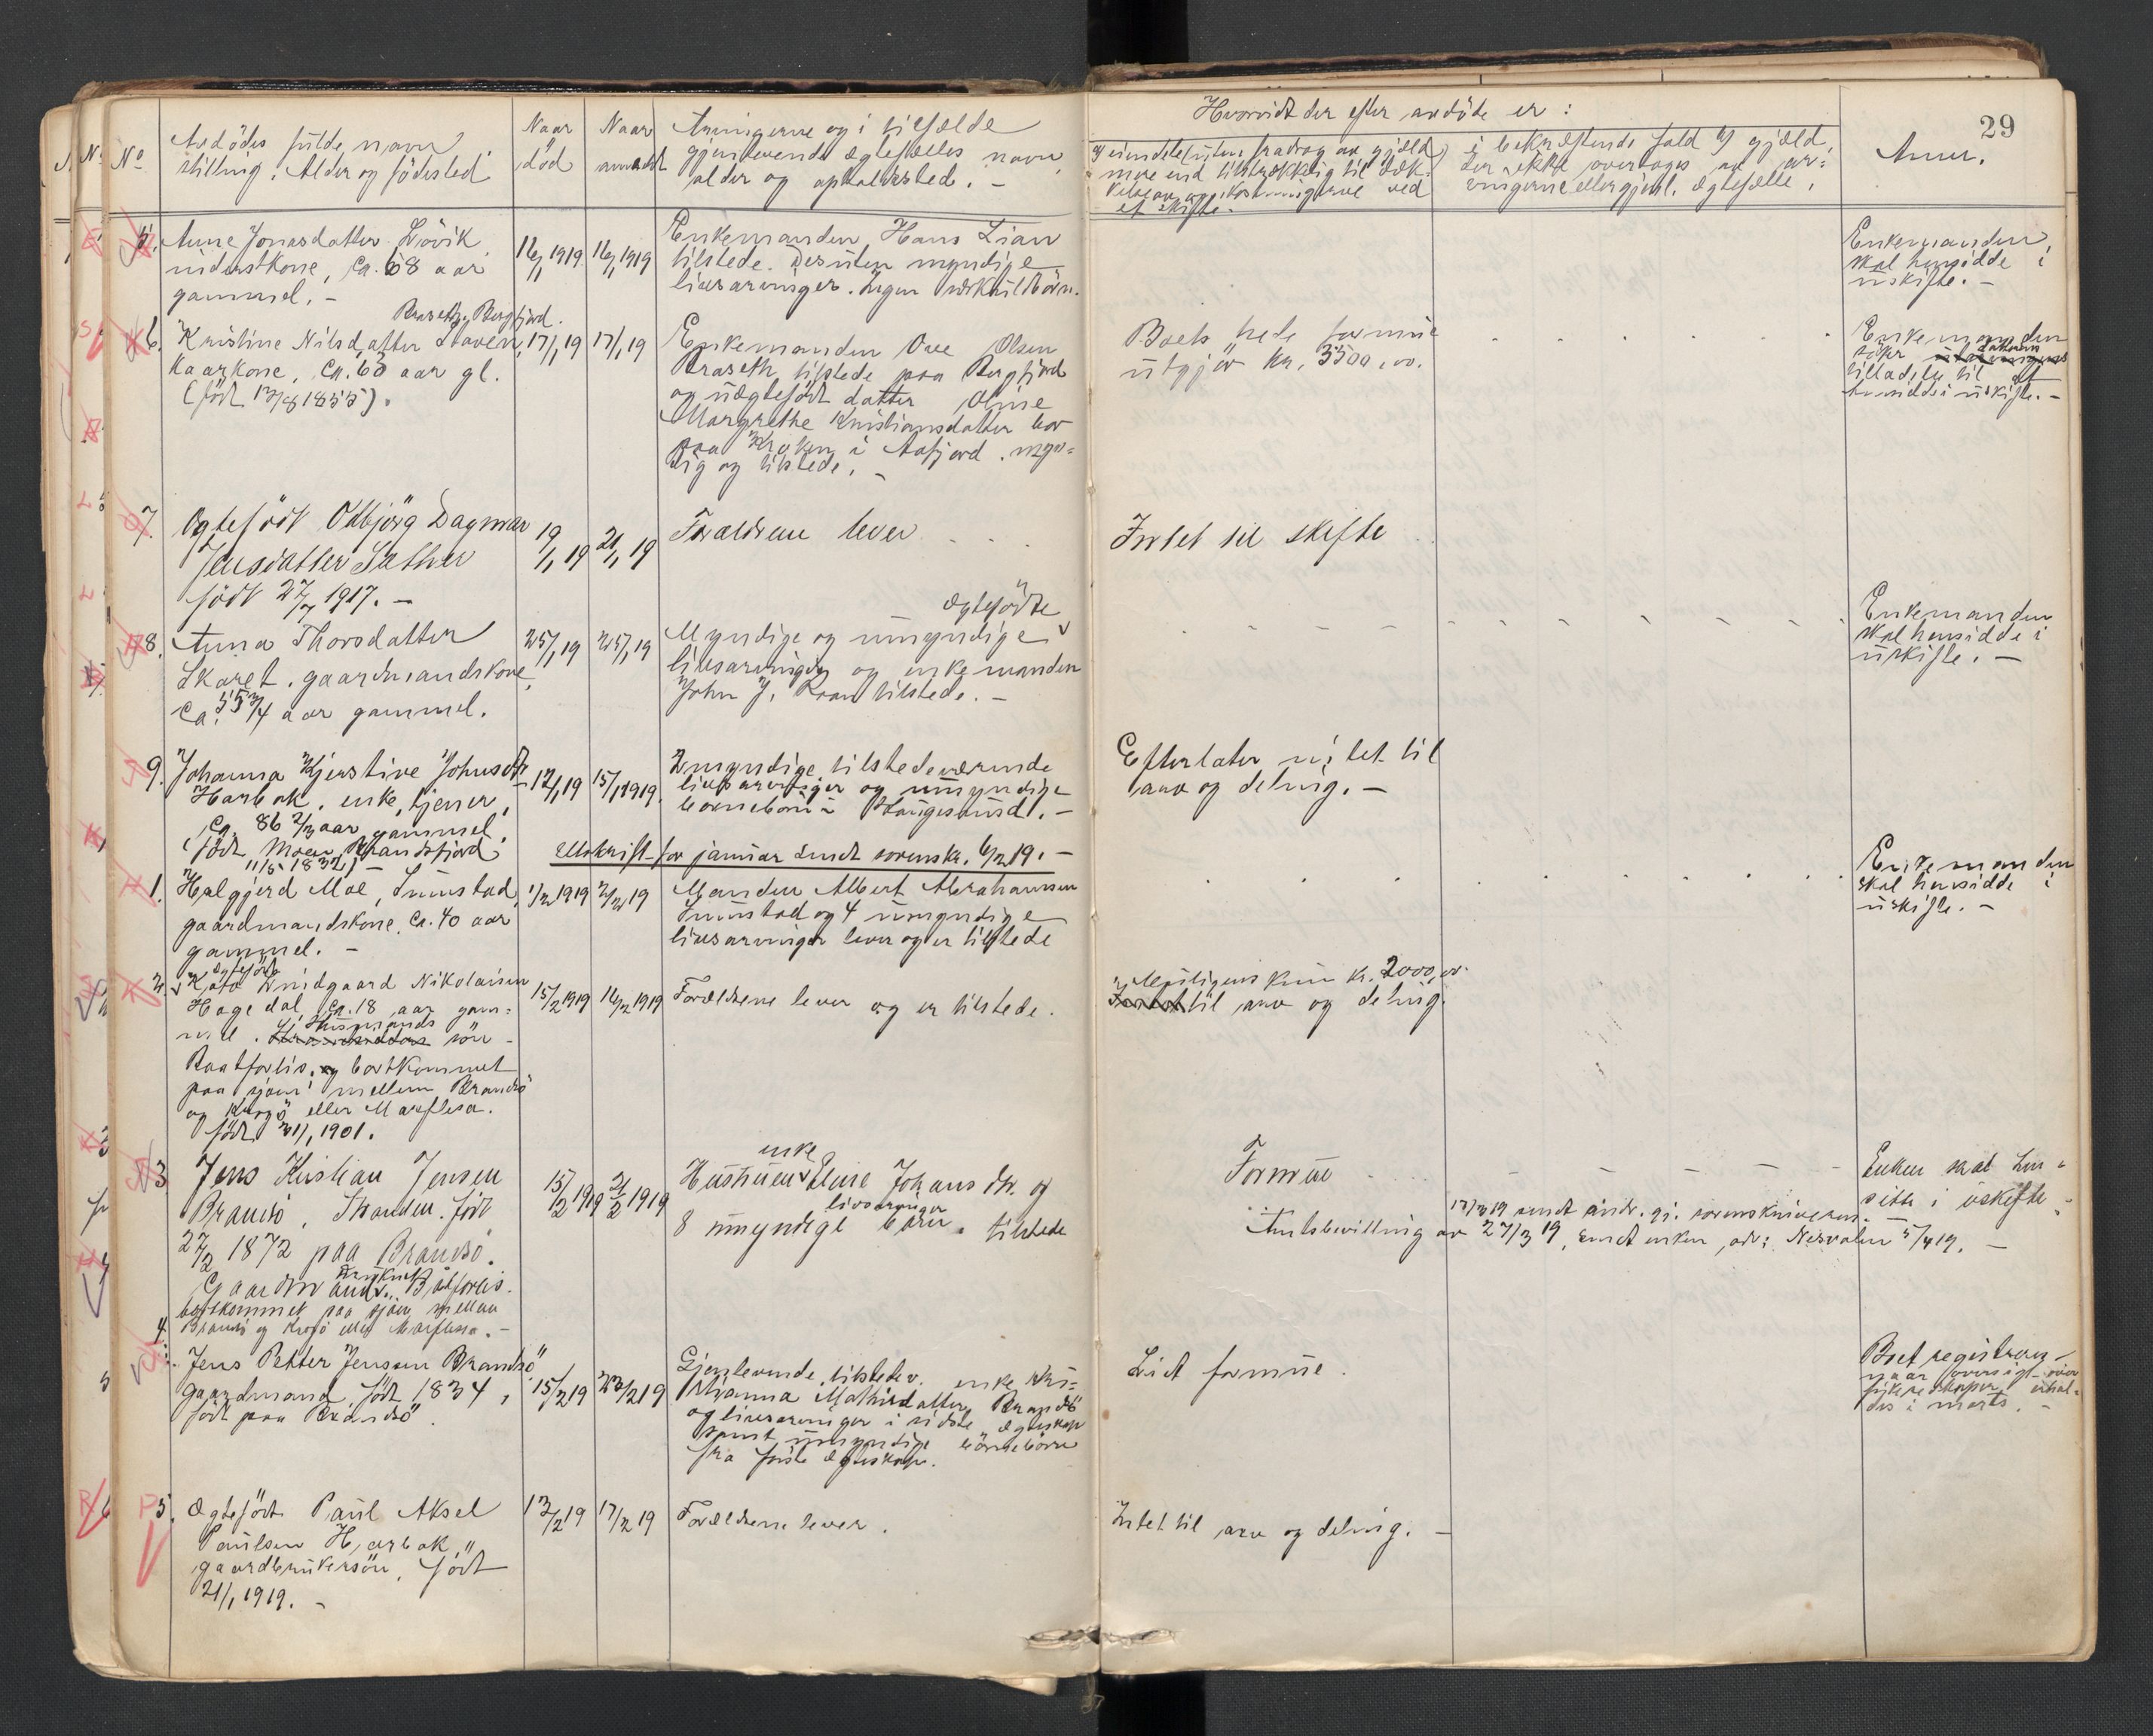 29
No
Avdødes fulde navn,
stilling. Alder og födested
Naar
död
Naar
anmeldt
Arvingerne og i tilfælde
gjenlevende ægtefælles navn,
alder og opholdssted. -
Hvorvidt der efter avdöde er:
a) eiendele (uten fradrag av gjæld)
mere end tilstrækkelig til dæk-
kelse av omkostningerne ved
et skifte.
i bekræftende fald b) gjæld,
der ikke overtages av ar-
vingerne eller gjenl. ægtefælle.
Anm.
5. Anne Jonasdatter Lövik
inderstkone, ca. 68 aar
gammel. -
16/1 1919
16/1 1919
Enkemanden Hans Lian
tilstede. Desuten myndige
livsarvinger. Ingen særkuldbörn.
Enkemanden
skal hensidde i
uskifte. -
Braseth, Bergfjord.
6. Kristine Nilsdatter Staven,
Kaarkone, ca. 63 aar gl.
(født 13/8 1855).
17/1 19
17/1 19
Enkemanden Ove Olsen
Braseth tilstede paa Bergfjord
og uægtefödt datter Oline
Margrethe Kristiansdatter bor
paa Kroken i Aafjord. myn-
dig og tilstede. -
Boets hele formue
utgjör kr. 3500,00.
Enkemanden
söker datterens
tilladelse til at
hensidde i uskifte. -
7. Ægtefödt Oddbjörg Dagmar
Jensdatter Sæther
födt 27/7 1917. -
19/1 19
21/1 19
Forældrene lever
Intet til skifte
8. Anna Thorsdatter
Skaret. gaardmandskone,
ca. 55 3/4 aar gammel.
25/1 19
25/1 19
ægtefödte
Myndige og umyndige
livsarvinger og enkemanden
John J. Kran tilstede. -
Enkemanden
skal hensidde i
uskifte. -
9. Johanna Kjerstine Johnsdtr
Harbak. enke, tjener,
ca. 86 2/3 aar gammel.
(födt Moen, Brandsfjord
11/5 1832) -
12/1 19
15/1 1919.
Umyndige tilstedeværende
livsarvinger og umyndige
barnebörn i Haugesund. -
Efterlater intet til
arv og deling. -
Utskrift for januar sendt sorenskr. 6/2 19. -
1. Halgjerd Moe, Sumstad,
gaardmandskone, ca. 40 aar
gammel. -
1/2 1919
2/2 19
Manden Albert Abrahamsen
Sumstad og 4 umyndige
livsarvinger lever og er tilstede
Enkemanden
skal hensidde i
uskifte. -
ægtefödt
2. Kato Windgaard Nikolaisen
Hagedal, ca. 18 aar gam-
mel. Husmands sön -
Baatforlis, og bortkommet
paa sjöen mellem Brandsö
og Krogö eller Marflesa.
födt 21/1 1901.
15/2 1919
16/2 1919
Forældrene lever og er tilstede.
Muligens kun kr. 2000,00
til arv og deling.
3. Jens Kristian Jensen
Brandsö, Stranden. födt
27/2 1872 paa Brandsö.
Gaardmand. Båtforlis.
bortkommet paa sjöen mellem
Brandsö og Krogö eller Marflesa. -
15/2 1919
21/2 1919
enke
Hustruen Eline Johansdtr. og
livsarvinger
8 umyndige barn. tilstede
Formue
17/3 19 sendt andr. gj. sorenskriveren. -
Amtsbevilling av 27/3 19, sendt enken, adr: Nesvalen 5/4 19. -
Enken skal hen-
sitte i uskifte.
4. Jens Petter Jensen Brandsö
gaardmand, födt 1834,
födt paa Brandsö.
15/2 19
23/2 19
Gjenlevende, tilstedev. enke Kri-
stianna Mathisdatter Brandsö
og livsarvinger i sidste ægteskap
samt umyndige börnebörn
fra förste ægteskap.
Lidt formue.
Boet registreres
naar oversigt over
fiskeredskaper erhol-
des i marts. -
5. Ægtefödt Paul Aksel
Paulsen Harbak,
gaardbrukersön, födt
21/1 1919. -
13/2 19
17/2 19
Forældrene lever.
Intet til arv og deling. -